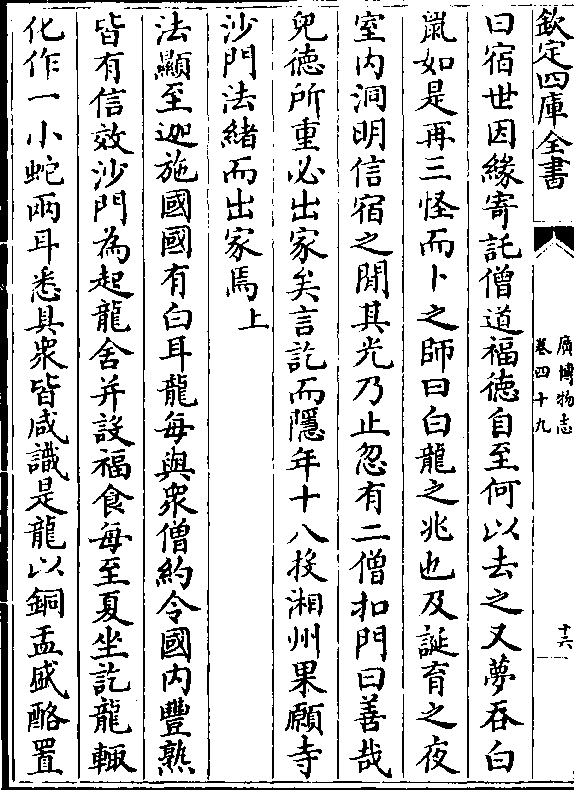 欽定四庫全書
廣博物志
卷四十九
十六
曰宿世因緣寄託僧道福德自至何以去之又夢吞白
鼠如是再三怪而卜之師曰白龍之兆也及誕育之夜
室内洞明信宿之間其光乃止忽有二僧扣門曰善哉
兒徳所重必出家矣言訖而隱年十八投湘州果願寺
沙門法緒而出家焉上
法顯至迦施國國有白耳龍每與衆僧約令國内豐熟
皆有信效沙門為起龍舍并設福食每至夏坐訖龍輙
化作一小蛇兩耳悉具衆皆咸識是龍以銅盂盛酪置